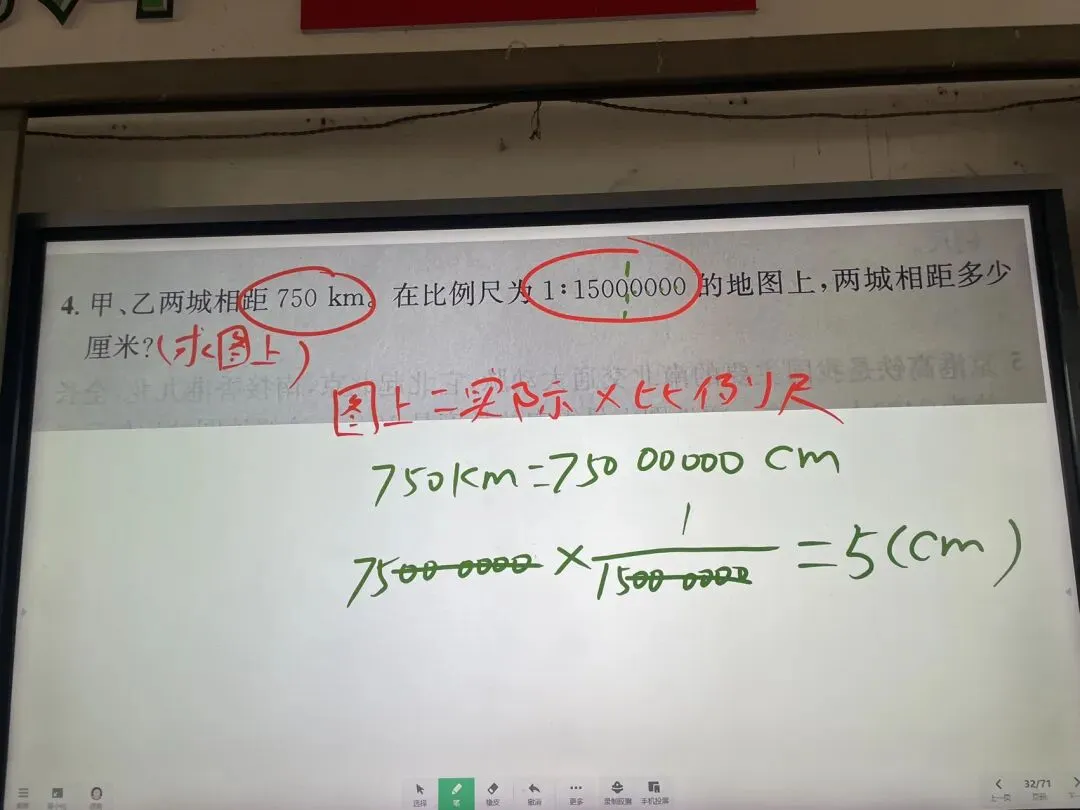 4. 甲、乙两城相距 750 km。在比例尺为 1∶15000000 的地图上,两城相距多少
厘米?(求图上)
图上=实际×比例尺
750km=750 00000 cm
7500 0000 × 1/1500 0000 = 5(cm)
选择 笔 橡皮 撤消 更多 录制胶囊 手机投屏
32/71
上一页